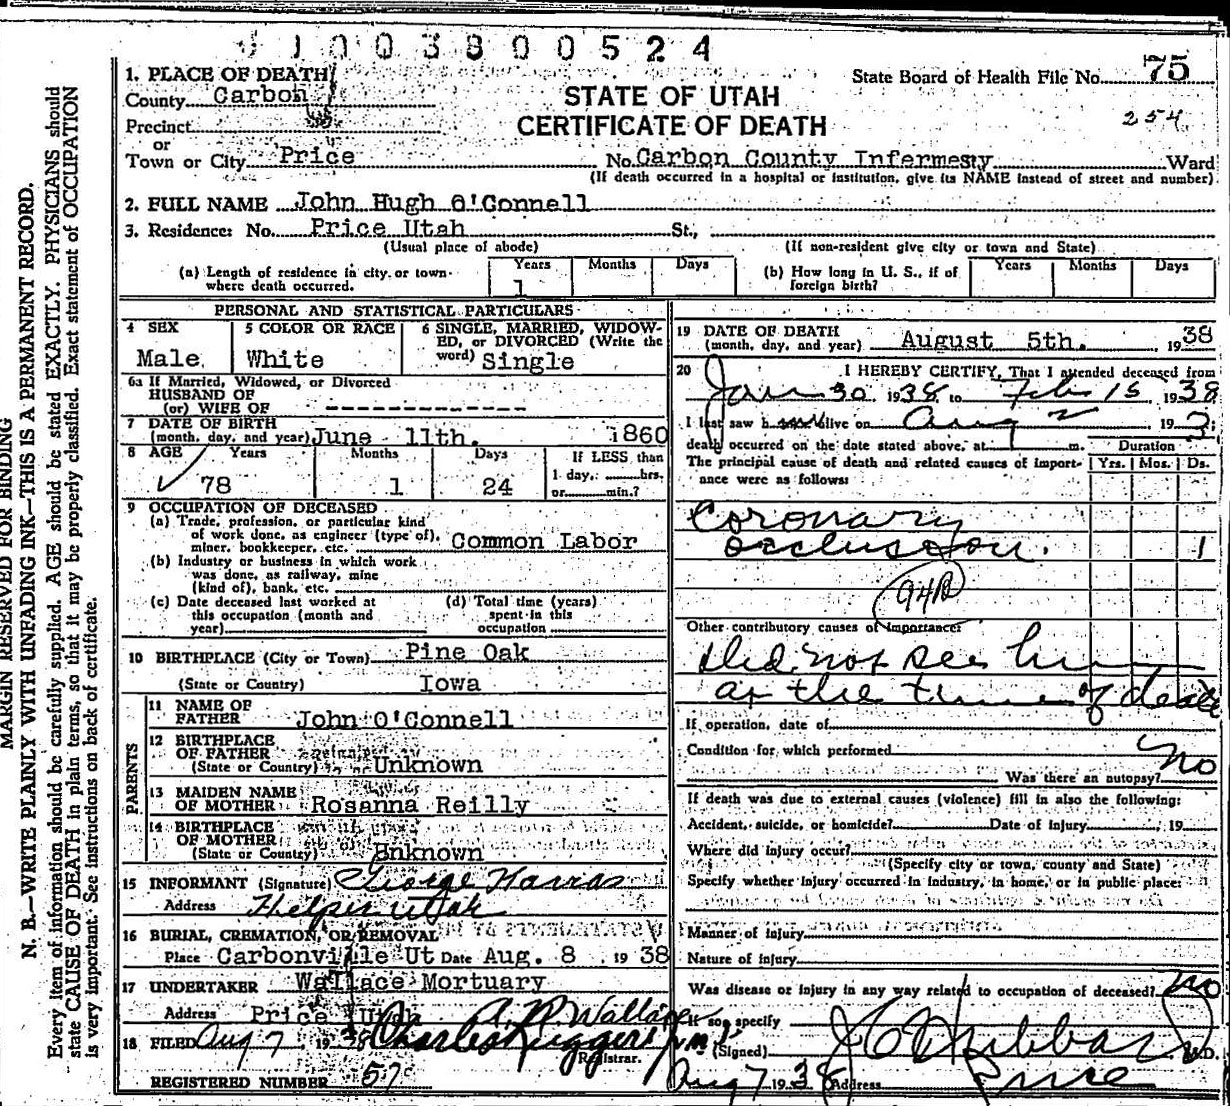 0 1 0 0 3 8 0 0 5 2 4
1. PLACE OF DEATH
State Board of Health File No. 75
County Carbon
STATE OF UTAH
254
Precinct
CERTIFICATE OF DEATH
or
Town or City Price No. Carbon County Infermesty Ward
(If death occurred in a hospital or institution, give its NAME instead of street and number)
2. FULL NAME John Hugh O'Connell
3. Residence: No. Price Utah St.,
(Usual place of abode) (If non-resident give city or town and State)
(a) Length of residence in city or town where death occurred. Years 1 Months Days
(b) How long in U. S., if of foreign birth? Years Months Days
PERSONAL AND STATISTICAL PARTICULARS
4 SEX Male
5 COLOR OR RACE White
6 SINGLE, MARRIED, WIDOWED, or DIVORCED (Write the word) Single
6a If Married, Widowed, or Divorced
HUSBAND OF
(or) WIFE OF --------------
7 DATE OF BIRTH
(month, day, and year) June 11th. 1860
8 AGE Years 78 Months 1 Days 24
If LESS than
1 day, hrs.
or min.?
9 OCCUPATION OF DECEASED
(a) Trade, profession, or particular kind
of work done, as engineer (type of),
miner, bookkeeper, etc. Common Labor
(b) Industry or business in which work
was done, as railway, mine
(kind of), bank, etc.
(c) Date deceased last worked at
this occupation (month and
year)
(d) Total time (years)
spent in this
occupation
10 BIRTHPLACE (City or Town) Pine Oak
(State or Country) Iowa
PARENTS
11 NAME OF
FATHER John O'Connell
12 BIRTHPLACE
OF FATHER
(State or Country) Unknown
13 MAIDEN NAME
OF MOTHER Rosanna Reilly
14 BIRTHPLACE
OF MOTHER
(State or Country) Unknown
15 INFORMANT (Signature) George Harras
Address Helper Utah
16 BURIAL, CREMATION, OR REMOVAL
Place Carbonville Ut Date Aug. 8 1938
17 UNDERTAKER Wallace Mortuary
Address Price Utah A. R. Wallace
18 FILED Aug 7, 1938 Charles Ruggeri
Registrar.
REGISTERED NUMBER 57
19 DATE OF DEATH
(month, day, and year) August 5th. 1938
20 I HEREBY CERTIFY, That I attended deceased from
Jan 30 1938 to Feb 15, 1938
I last saw h alive on Aug 2 193
death occurred on the date stated above, at m. Duration
The principal cause of death and related causes of importance were as follows: Yrs. Mos. Ds.
Coronary
occlusion. 1
94B
Other contributory causes of importance:
Did not see him
at the time of death
If operation, date of
Condition for which performed
Was there an autopsy? No
If death was due to external causes (violence) fill in also the following:
Accident, suicide, or homicide? Date of Injury , 19
Where did injury occur?
(Specify city or town, county and State)
Specify whether injury occurred in industry, in home, or in public place:
Manner of injury
Nature of injury
Was disease or injury in any way related to occupation of deceased? No
If so, specify
(Signed) J C Hubbard M.D.
Aug 7 1938 Address Price
MARGIN RESERVED FOR BINDING
N. B.—WRITE PLAINLY WITH UNFADING INK—THIS IS A PERMANENT RECORD.
Every item of information should be carefully supplied. AGE should be stated EXACTLY. PHYSICIANS should
state CAUSE OF DEATH in plain terms, so that it may be properly classified. Exact statement of OCCUPATION
is very important. See instructions on back of certificate.